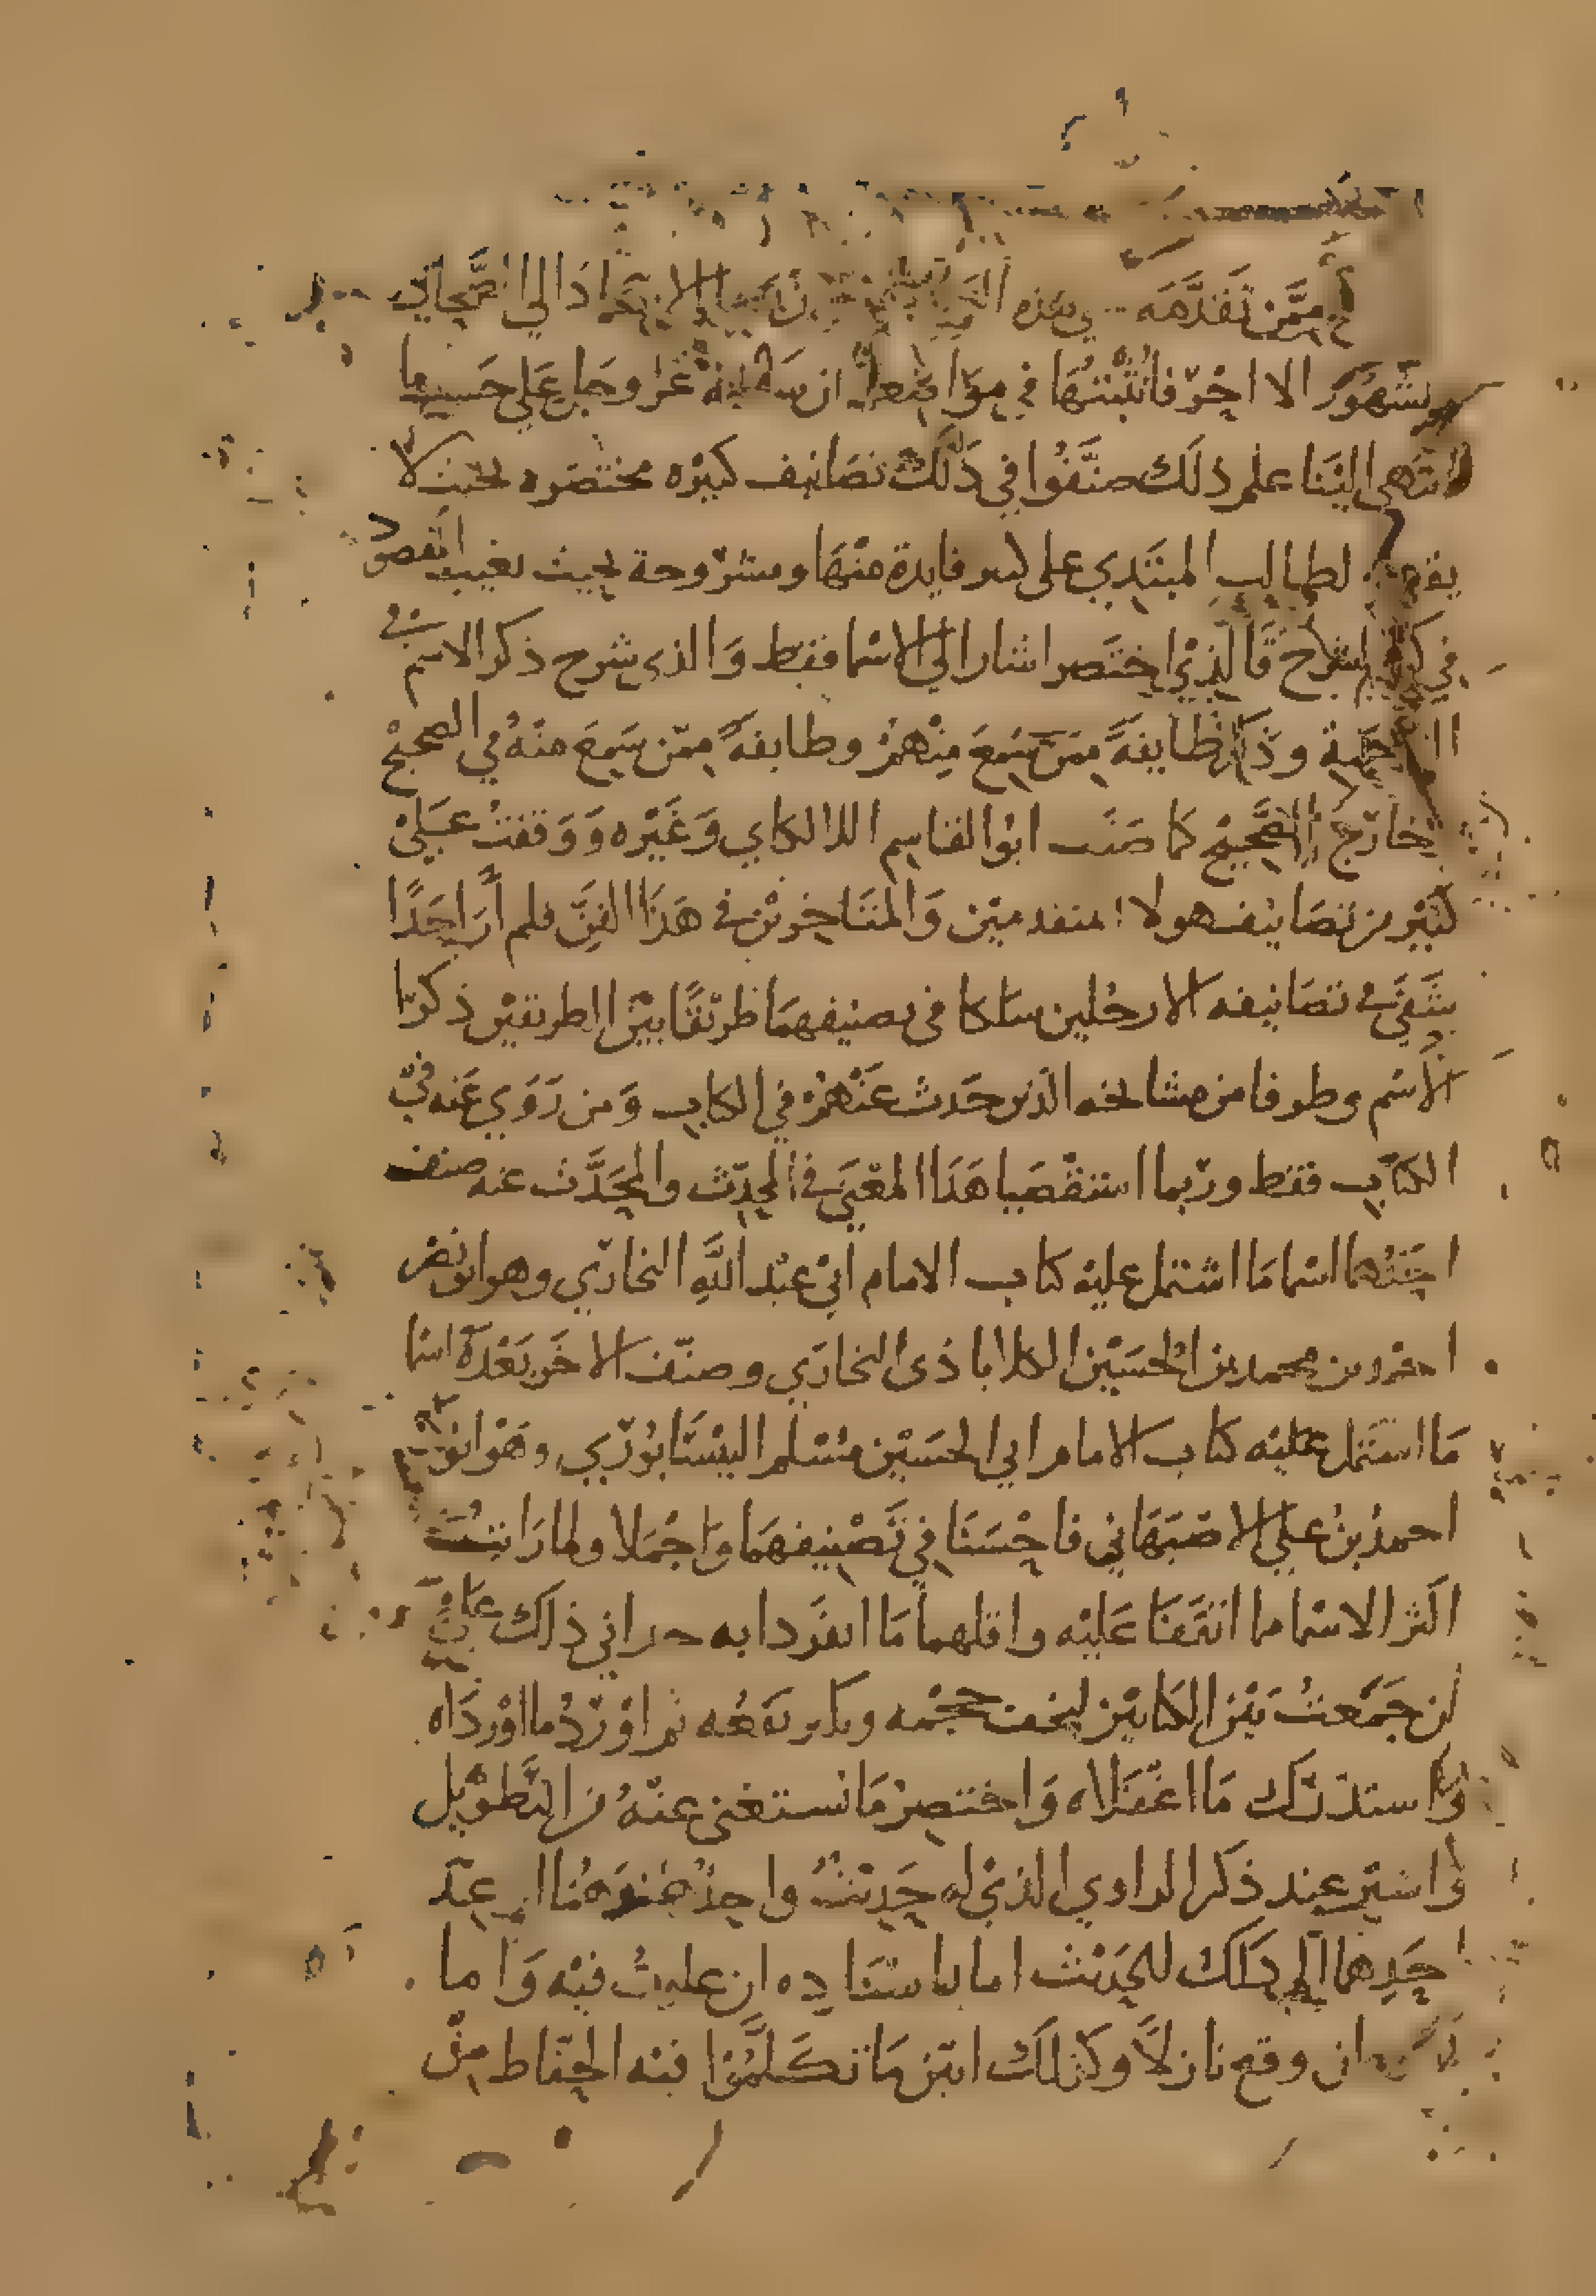 ممن تقدمه في هذه
مشهور الا احرفا نثبتها في مواضعها ان شاء الله عز وجل على حسب ما
انتهى الينا علم ذلك صنفوا في ذلك تصانيف كثيره مختصره بحيث لا
يقف لطالب المبتدي على كبير فايدة منها ومشروحة بحيث يغيب المقصود
في الشرح فالذي اختصر اشار الى الاسما فقط والذي شرح ذكر الاسم في
الترجمة وذكر طايفة ممن سمع منهم وطايفة ممن سمع منه في الصحيح
خارج الصحيح كما صنف ابو القاسم اللالكاي وغيره ووقفت على
كثير من تصانيف هولا المتقدمين والمتاخرين في هذا الفن فلم أر احدا
في تصانيفه الا رجلين سلكا في تصنيفهما طريقا بين الطريقين ذكرا
الاسم وطرفا من مشايخه الذين حدث عنهم في الكتاب ومن روى عنه في
الكتاب فقط وربما استقصيا هذا المعنى في المحدث والمحدث عنه صنف
احدهما اسما ما اشتمل عليه كتاب الامام ابي عبد الله البخاري وهو ابو نصر
احمد بن محمد بن الحسين الكلاباذي البخاري وصنف الاخر بعده اسما
ما اشتمل عليه كتاب الامام ابي الحسين مسلم النيسابوري وهو ابو بكر
احمد بن علي الاصبهاني فاحسنا في تصنيفهما واجملا ولما رايت
اكثر الاسما ما اتفقا عليه واقلهما ما انفردا به حداني ذلك على
ان جمعت بين الكتابين ليخف حجمه ويكثر نفعه ثم اورد ما اورداه
واستدرك ما اغفلاه واختصر ما نستغنى عنه من التطويل
واشير عند ذكر الراوي الذي له حديث واحد عند
احدهما الى ذلك الحديث اما باسناده ان علوت فيه واما
ان وقع نازلا وكذلك ابين ما تكلموا فيه الحفاظ من